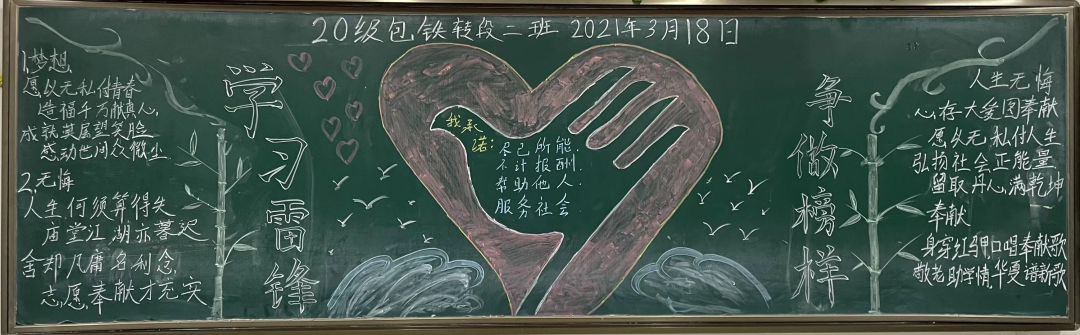 20级包铁转段二班 2021年3月18日
1.梦想
愿以无私付青春
造福千万献真心,
成就英展望笑脸
感动世间众微尘.
2.无悔
人生何须算得失
庙堂江湖亦暮迟
舍却凡庸名利念,
志愿奉献才充实
学习雷锋
我承诺:
尽己所能.
不计报酬.
帮助他人.
服务社会.
争做榜样
人生无悔
心存大爱图奉献
愿以无私付人生
弘扬社会正能量
留取丹心满乾坤
奉献
身穿红马甲口唱奉献歌
敬老助学情,华夏谱新歌